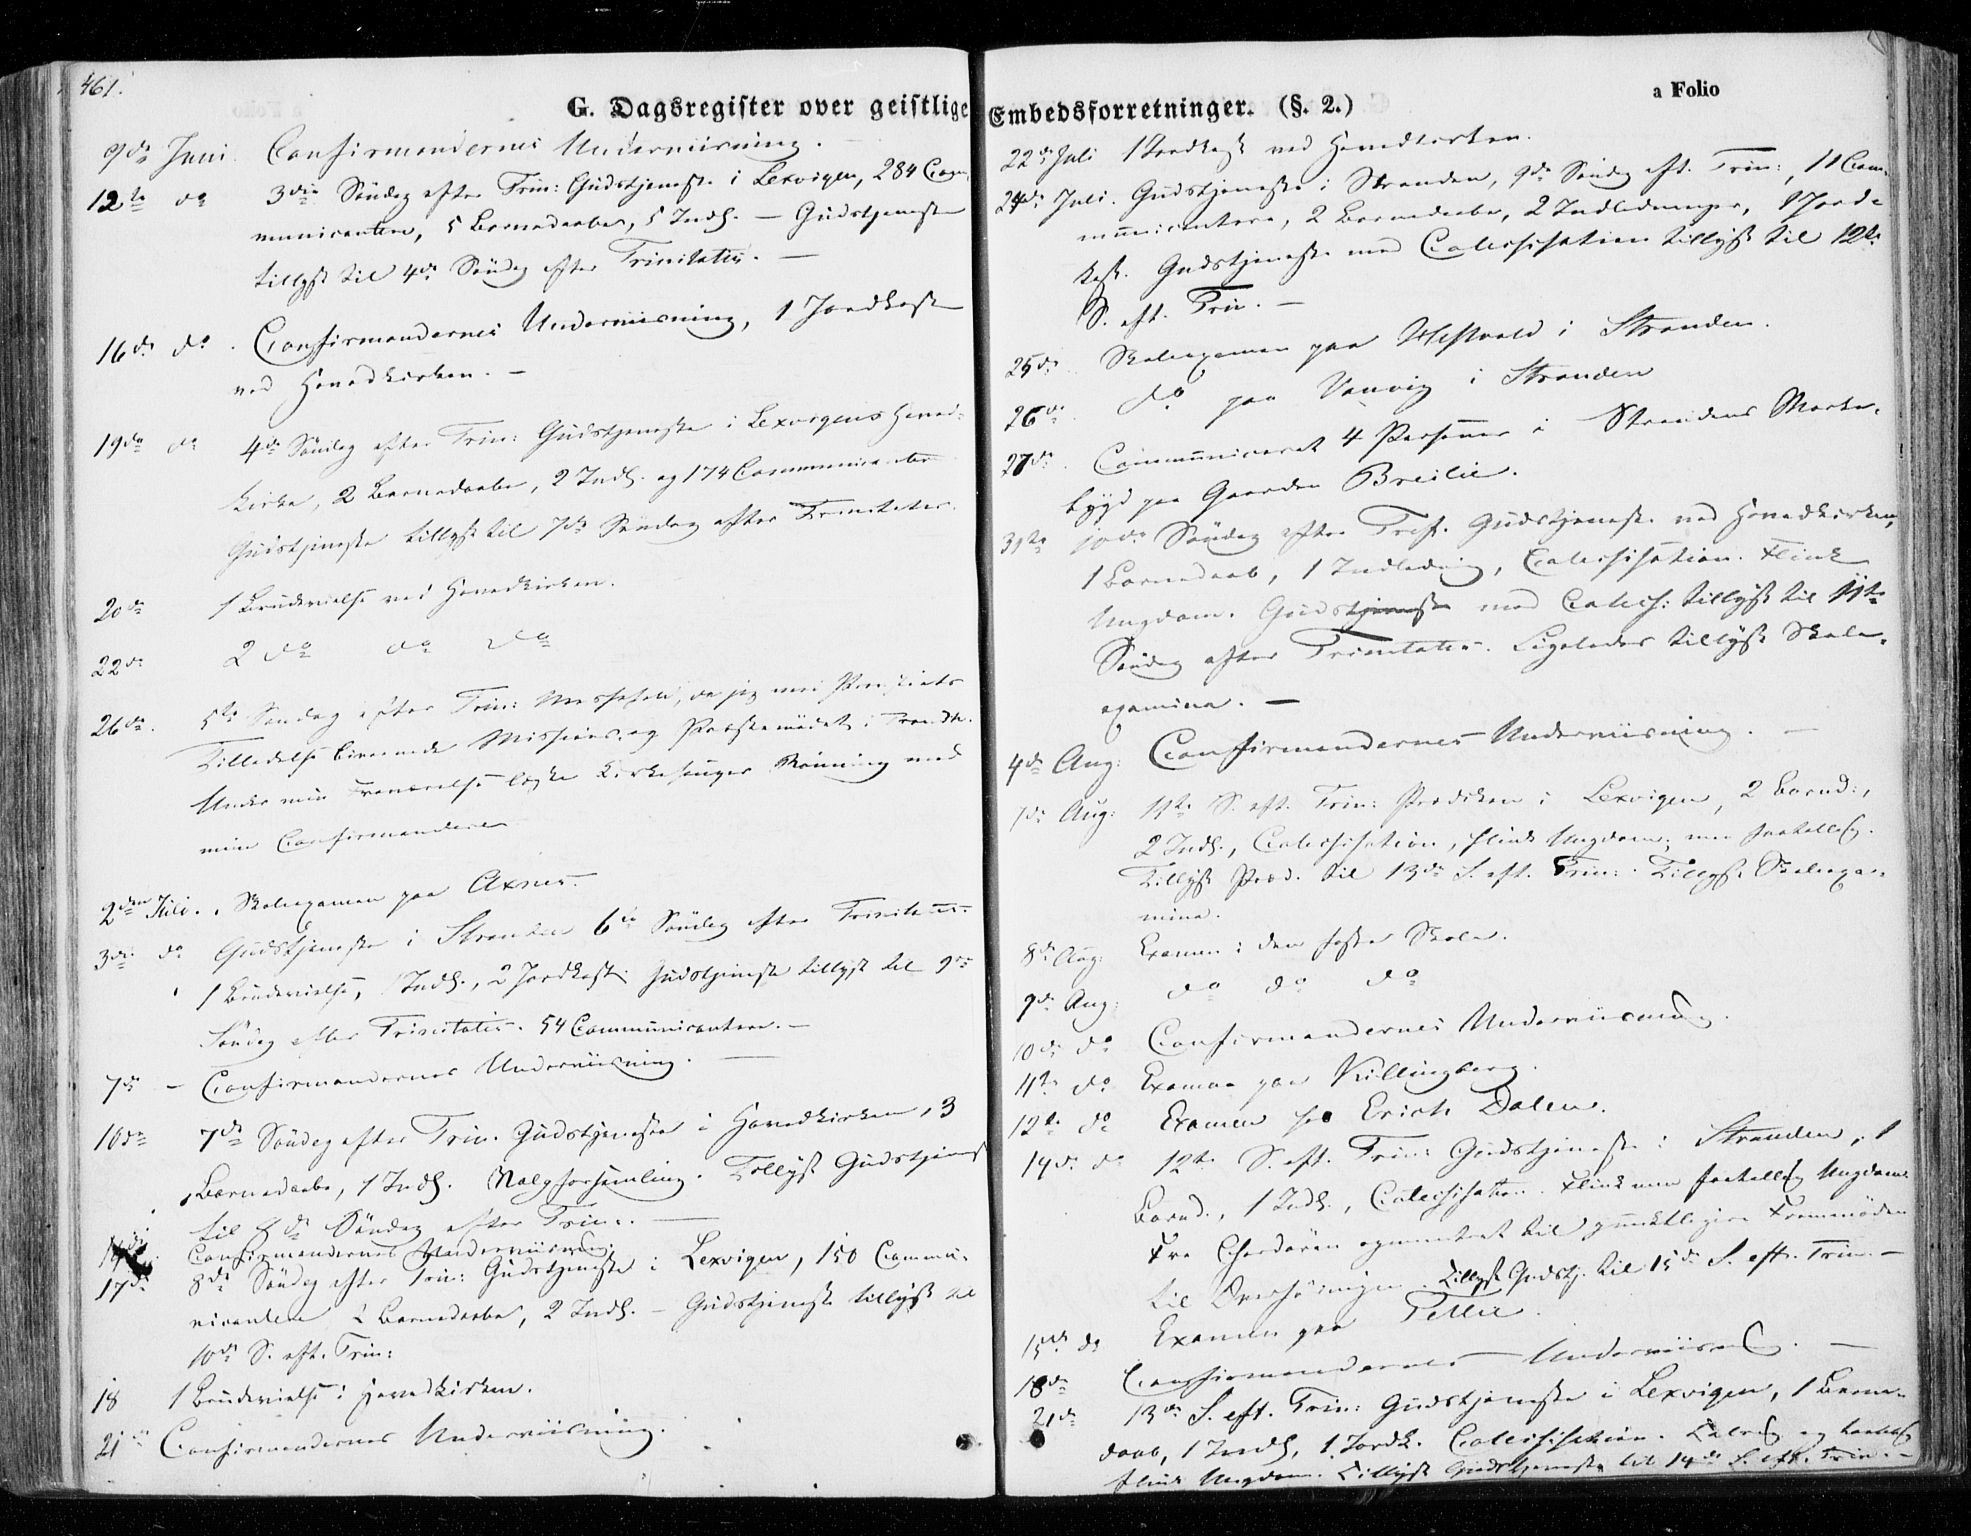 461.
G. Dagsregister over geistlige Embedsforretninger. (§. 2.)
a Folio
9de Juni. Confirmandernes Underviisning. —
12te do 3die Søndag efter Trin: Gudstjeneste i Lexvigen, 284 Com-
municantere, 5 Barnedaabe, 5 Indl. — Gudstjeneste
tillyst til 4de Søndag efter Trinitatis. —
16de do. Confirmandernes Underviisning, 1 Jordkast
ved Hovedkirken. —
19de do 4de Søndag efter Trin: Gudstjeneste i Lexvigens Hoved-
kirke, 2 Barnedaabe, 2 Indl. og 174 Communicantere
Gudstjeneste tillyst til 7de Søndag efter Trinitatis.
20de 1 Brudevielse ved Hovedkirken.
22de 2 do do do
26de. 5te Søndag efter Trin: Messefald, da jeg med
Tilladelse bivaanede Missions og Præstemødet i Trondh.
Under min Fraværelse Kirkesanger Rønning med
mine Confirmandere
2den Juli. Skoleexamen paa Axnes.
3die do Gudstjeneste i Stranden 6te Søndag efter Trinitatis.
1 Brudevielse, 1 Indl., 2 Jordkast. Gudstjeneste tillyst til 9de
Søndag efter Trinitatis. 54 Communicantere. —
7de — Confirmandernes Underviisning. —
10de 7de Søndag efter Trin. Gudstjeneste i Hovedkirken, 3
Barnedaabe, 1 Indl. Valgforsamling. Tillyst Gudstjeneste
til 8de Søndag efter Trin:. —
Confirmandernes Underviisning.
17de 8de Søndag efter Trin: Gudstjeneste i Lexvigen, 150 Commu-
nicantere 2 Barnedaabe, 2 Indl. — Gudstjeneste tillyst til
10de S. eft. Trin:
18 1 Brudevielse i Hovedkirken.
21de Confirmandernes Underviisning.
22de Juli 1 Jordkast ved Hovedkirken.
24de Juli. Gudstjeneste i Stranden, 9de Søndag eft. Trin:, 11 Com-
municantere, 2 Barnedaabe, 2 Indledninger, 1 Jord-
kast. Gudstjeneste med Catechisation tillyst til 12te
S. eft. Trin. —
25de. Skoleexamen paa i Stranden.
26de. do paa Vanvig i Stranden
27de. Communiceret 4 Personer i Strandens Marke-
bygd paa Gaarden Breilie.
31te 10de Søndag efter Gudstjeneste ved Hovedkirken,
1 Barnedaab, 1 Indledning, Catechisation. Flink
Ungdom. Gudstjeneste med Catech: tillyst til 11te
Søndag efter Trinitatis. Ligeledes tillyst Skole-
examina. —
4de Aug: Confirmandernes Underviisning. —
7de Aug: 11te S. eft. Trin: Prædiken i Lexvigen, 2 Barnd:,
2 Indl., Catechisation, flink Ungdom; men faatallig.
Tillyst Præd. til 13de S. eft. Trin:. Tillyst Skoleexa-
mina.
8de Aug: Examen i den faste Skole.
9de Aug: do do do
10de do Confirmandernes Underviisning.
11te do Examen paa Killingberg.
12te do Examen hos Erich Dalen.
14de do 12te S. eft. Trin: Gudstjeneste i Stranden, 1
Barnd., 1 Indl., Catechisation. Flink men faatallig Ungdom.
Fra Chordøren opmuntret til punktligere Fremmøden
til Tillyst Gudstj. til 15de S. eft. Trin. —
15de do Examen paa
18de Confirmandernes Underviisning. —
21de 13de S. eft. Trin: Gudstjeneste i Lexvigen, 1 Barne-
daab, 1 Indl, 1 Jordk. Catechisation. Talrig og
flink Ungdom. Tillyst Gudstjeneste til 14de S. eft. Trin. —